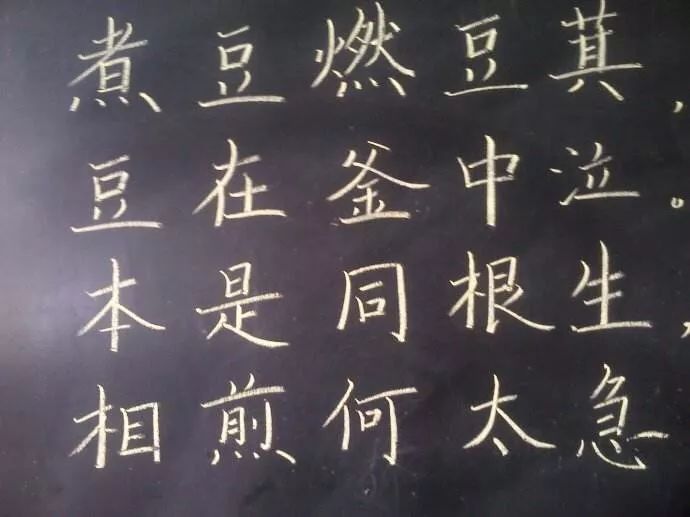 煮豆燃豆萁，
豆在釜中泣。
本是同根生，
相煎何太急